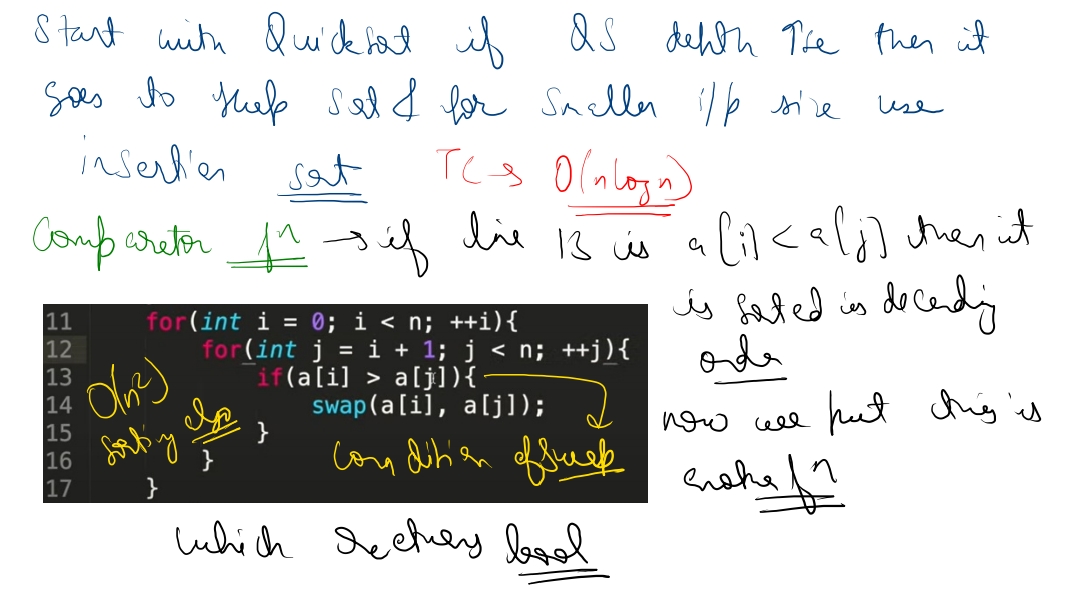 Start with Quicksort if QS depth ↑se then it
goes to heap sort & for smaller i/p size use
insertion sort TC → O(nlogn)
Comparator fn → if line 13 is a[i] < a[j] then it
is sorted in decending
order
now we put this in
another fn
which returns bool
11 for(int i = 0; i < n; ++i){
12 for(int j = i + 1; j < n; ++j){
13 if(a[i] > a[j]){
14 swap(a[i], a[j]);
15 }
16 }
17 }
O(n²)
sorting
condition of swap